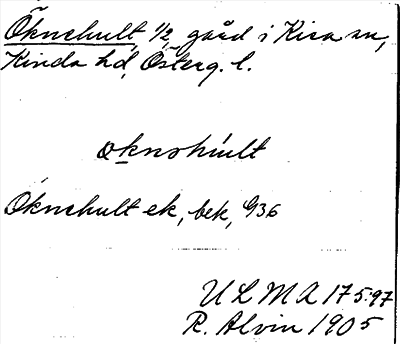 Öknehult, 1/2 gård i Kisa sn,
Kinda hd, Österg. l.
øknəhúlt
Öknehult ek, bek, G36
ULMA 175:97
R. Alvin 1905